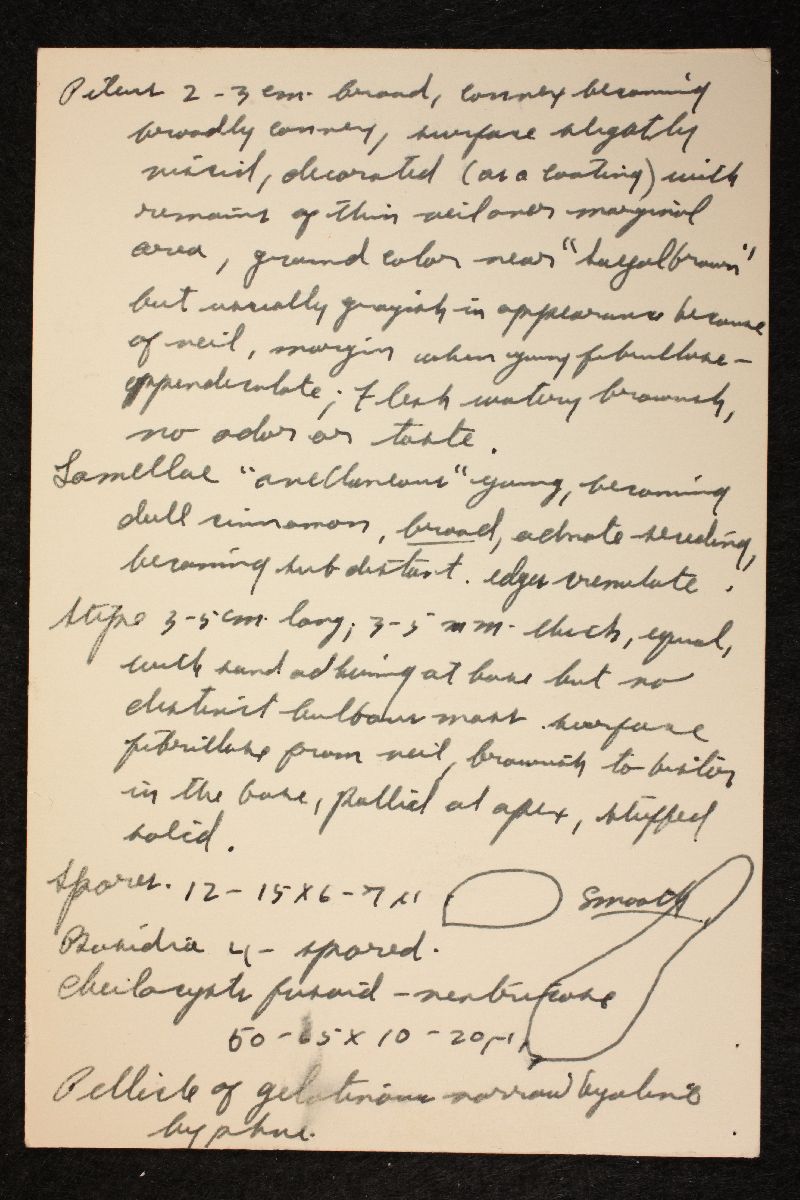 Pileus 2-3 cm. broad, convex becoming
broadly convex, surface slightly
viscid, decorated (as a coating) with
remains of thin veil over marginal
area, ground color near "sayal brown"
but usually grayish in appearance because
of veil, margin when young fibrillose-
appendiculate; Flesh watery brownish,
no odor or taste.
Lamellae "avellaneous" young, becoming
dull cinnamon, broad, adnate seceding,
becoming subdistant. edges crenulate.
Stipe 3-5 cm. long; 3-5 mm. thick, equal,
with sand adhering at base but no
distinct bulbous mass. surface
fibrillose from veil, brownish to bister
in the base, pallid at apex, stuffed
solid.
Spores. 12-15 x 6-7 µ Smooth,
Basidia 4-spored.
Cheilocysts fusoid-ventricose
50-65 x 10-20 µ,
Pellicle of gelatinous narrow hyaline
hyphae.